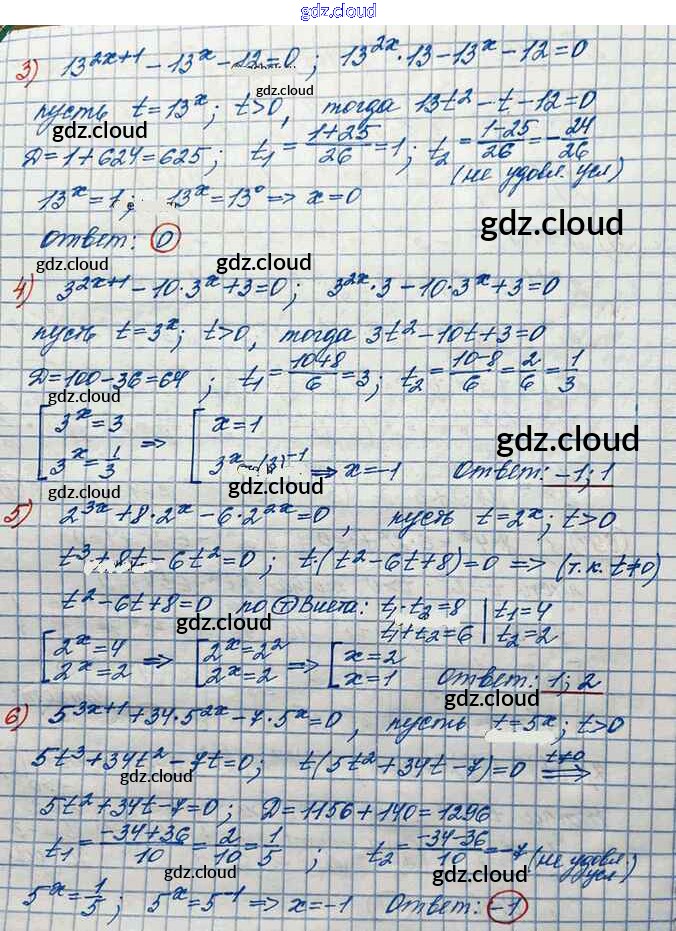 gdz.cloud
3) 13^{2x+1} - 13^x - 12 = 0 ; 13^{2x} · 13 - 13^x - 12 = 0
gdz.cloud gdz.cloud
пусть t = 13^x ; t > 0, тогда 13t² - t - 12 = 0
gdz.cloud gdz.cloud
D = 1 + 624 = 625 ; t₁ = \frac{1+25}{26} = 1 ; t₂ = \frac{1-25}{26} = -\frac{24}{26}
(не удовл. усл)
13^x = 1 ; 13^x = 13^0 => x = 0
gdz.cloud gdz.cloud
Ответ: 0
gdz.cloud gdz.cloud
4) 3^{2x+1} - 10 · 3^x + 3 = 0 ; 3^{2x} · 3 - 10 · 3^x + 3 = 0
пусть t = 3^x ; t > 0, тогда 3t² - 10t + 3 = 0
gdz.cloud gdz.cloud
D = 100 - 36 = 64 ; t₁ = \frac{10+8}{6} = 3 ; t₂ = \frac{10-8}{6} = \frac{2}{6} = \frac{1}{3}
gdz.cloud
[ 3^x = 3 => [ x = 1
gdz.cloud
3^x = \frac{1}{3} 3^x (3)^{-1} => x = -1 Ответ: -1; 1
gdz.cloud gdz.cloud gdz.cloud
5) 2^{3x} + 8 · 2^x - 6 · 2^{2x} = 0, пусть t = 2^x ; t > 0
t³ + 8t - 6t² = 0 ; t · (t² - 6t + 8) = 0 => (т.к. t ≠ 0)
gdz.cloud gdz.cloud
t² - 6t + 8 = 0 по Т Виета: t₁ · t₂ = 8 | t₁ = 4
gdz.cloud gdz.cloud
t₁ + t₂ = 6 | t₂ = 2
[ 2^x = 4 => [ 2^x = 2² => [ x = 2
2^x = 2 2^x = 2 x = 1 Ответ: 1; 2
gdz.cloud gdz.cloud
6) 5^{3x+1} + 34 · 5^{2x} - 7 · 5^x = 0, пусть t = 5x ; t > 0
gdz.cloud
5t³ + 34t² - 7t = 0 ; t(5t² + 34t - 7) = 0 \overset{t≠0}{=>}
gdz.cloud
5t² + 34t - 7 = 0 ; D = 1156 + 140 = 1296
gdz.cloud gdz.cloud
t₁ = \frac{-34+36}{10} = \frac{2}{10} = \frac{1}{5} ; t₂ = \frac{-34-36}{10} = -7 (не удовл. усл)
gdz.cloud gdz.cloud
5^x = \frac{1}{5} ; 5^x = 5^{-1} => x = -1 Ответ: -1
gdz.cloud